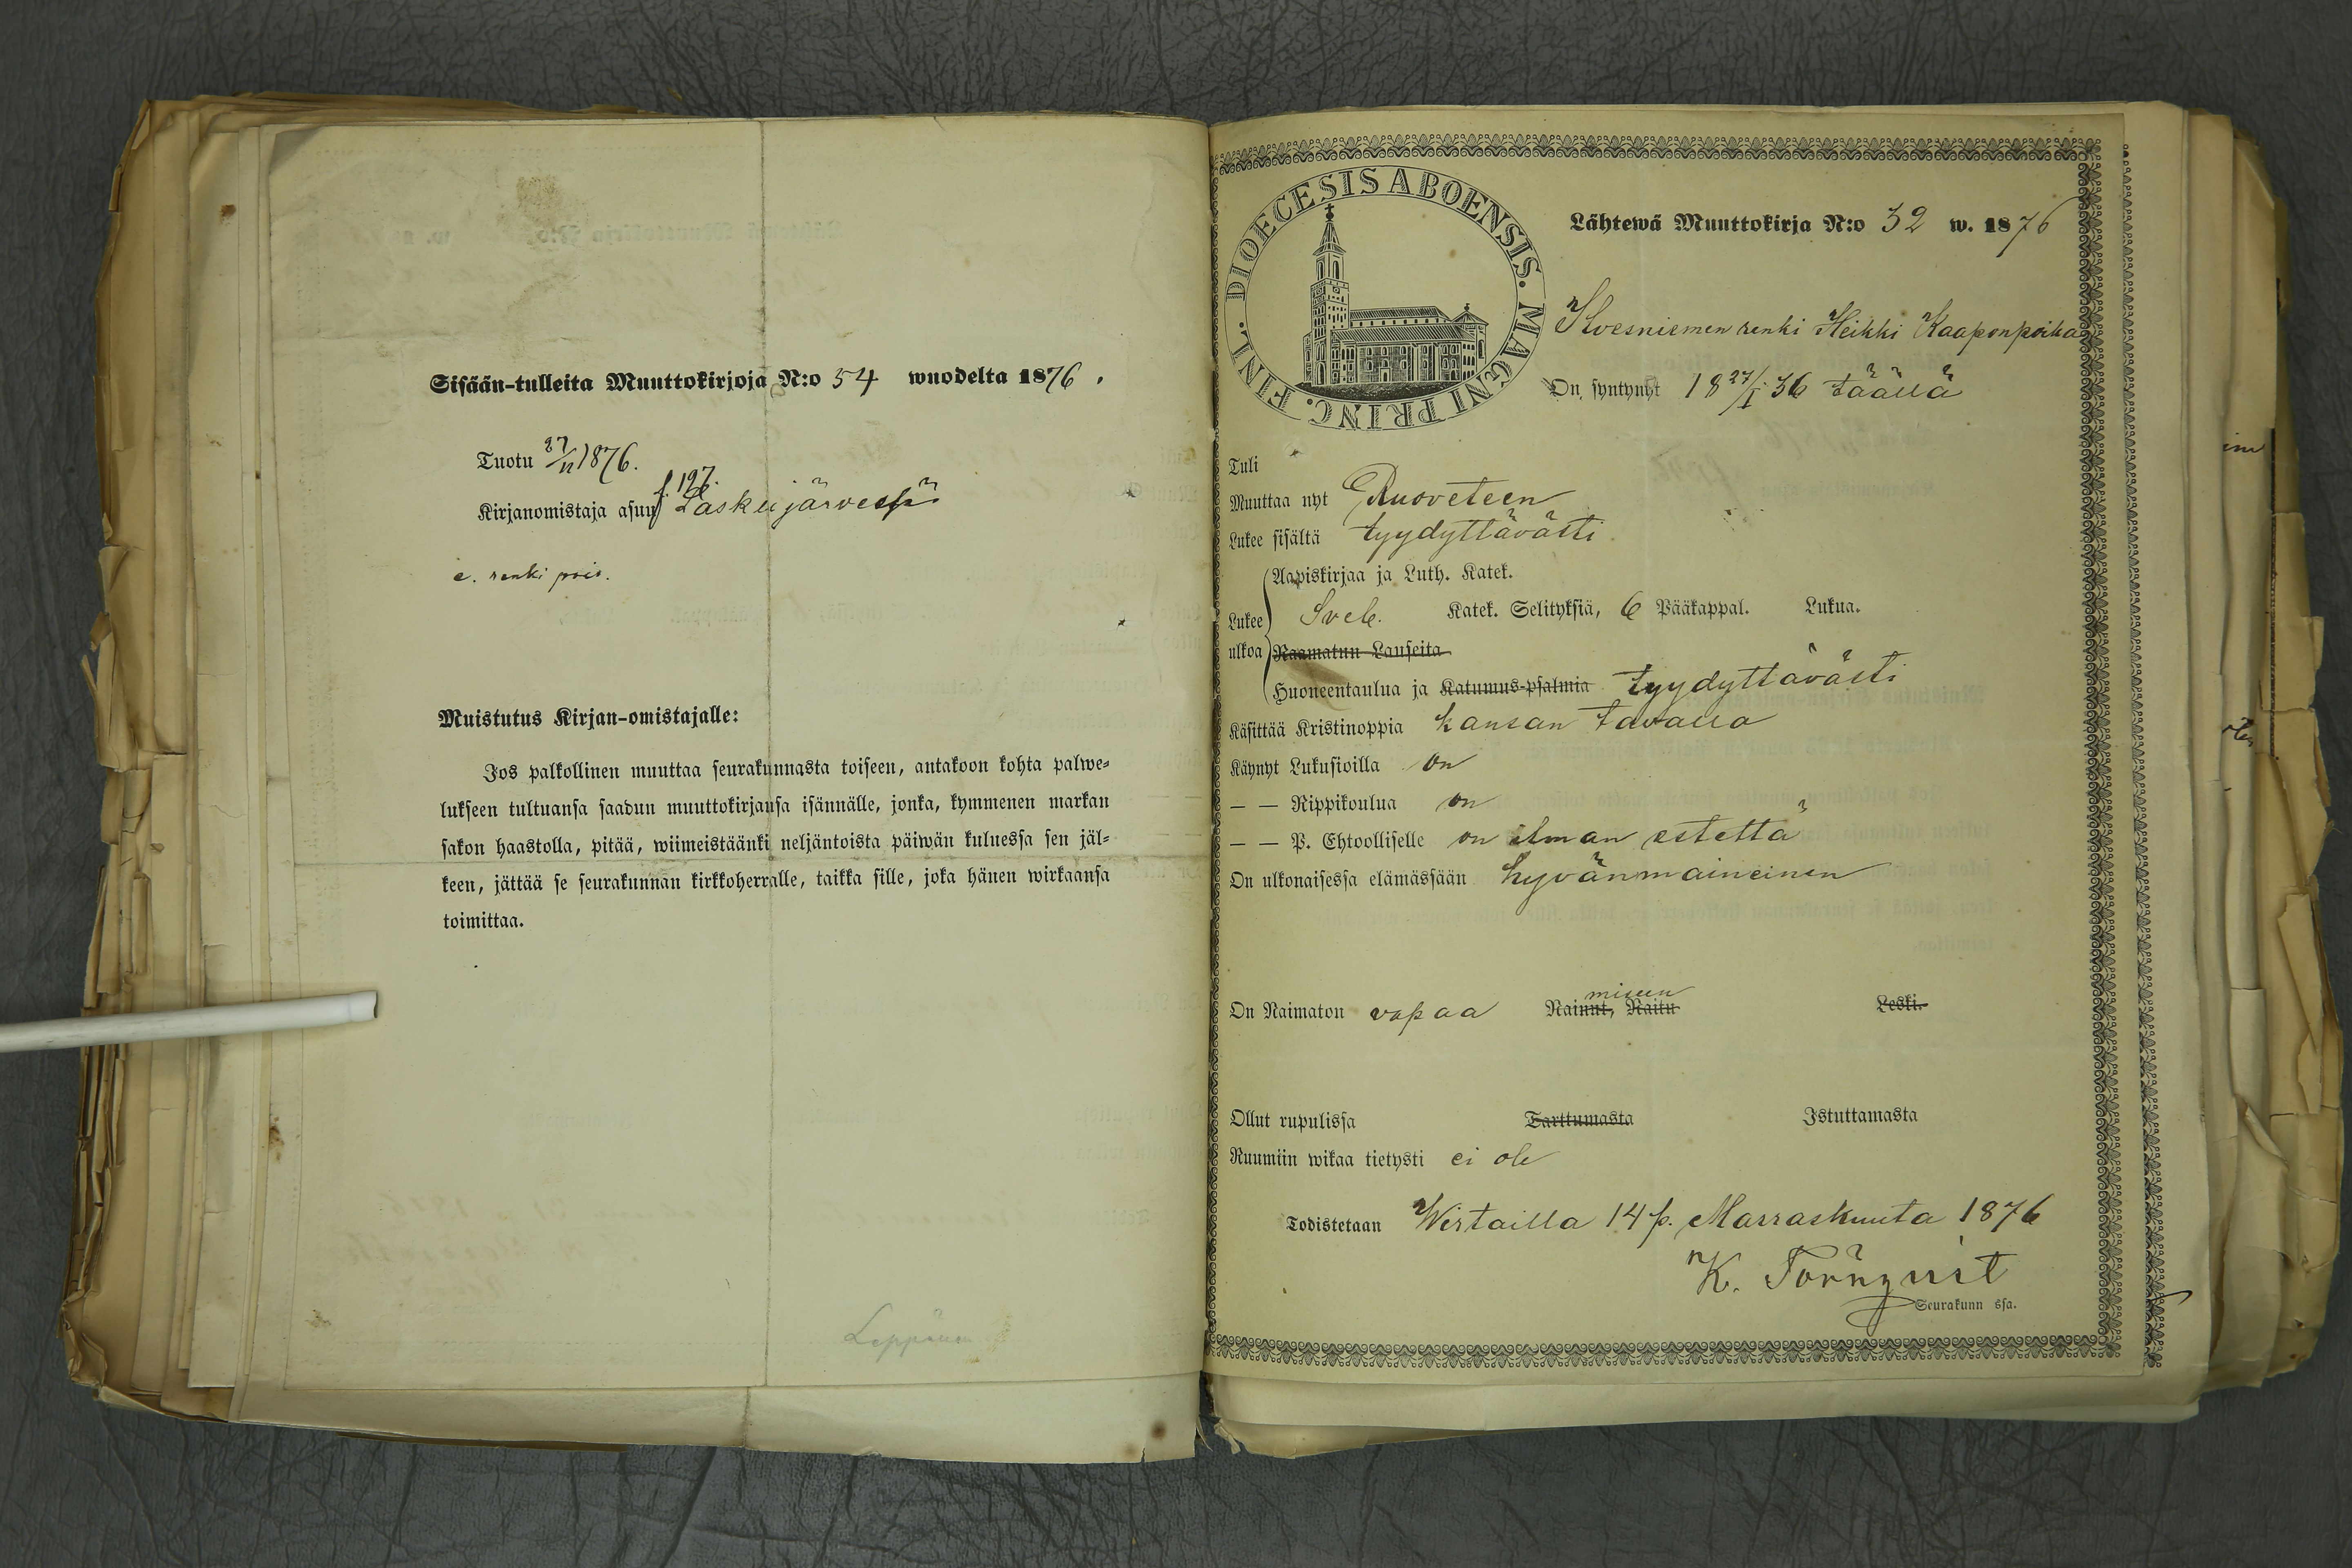 Sisään-tulleita Muuttokirjoja N:o 54 wuodelta 1876.
Tuotu 27/11 1876.
f. 197.
Kirjanomistaja asuu Laskujärvessä
e. renki pois.
Muistutus Kirjan-omistajalle:
Jos palkollinen muuttaa seurakunnasta toiseen, antakoon kohta palwe-
lukseen tultuansa saadun muuttokirjansa isännälle, jonka, kymmenen markan
sakon haastolla, pitää, wiimeistäänki neljäntoista päiwän kuluessa sen jäl-
keen, jättää se seurakunnan kirkkoherralle, taikka sille, joka hänen wirkaansa
toimittaa.
Leppänen
DIOECESIS ABOENSIS. MAGNI PRINC. FINL.
Lähtewä Muuttokirja N:o 32 w. 1876
Ilvesniemen renki Heikki Kaaponpoika
On syntynyt 18 27/I 36 täällä
Tuli
Muuttaa nyt Ruoveteen
Lukee sisältä tyydyttävästi
Aapiskirjaa ja Luth. Katek.
Lukee ulkoa Sveb. Katek. Selityksiä, 6 Pääkappal. Lukua.
Raamatun Lauseita
Huoneentaulua ja Katumus-psalmia tyydyttävästi
Käsittää Kristinoppia kansan tavalla
Käynyt Lukusioilla on
— — Rippikoulua on
— — P. Ehtoolliselle on ilman estettä
On ulkonaisessa elämässään hyvänmaineinen
On Naimaton vapaa Nainut, Naitu miseen Leski.
Ollut rupulissa Tarttumasta Istuttamasta
Ruumiin wikaa tietysti ei ole
Todistetaan Wirtailla 14 p. Marraskuuta 1876
K. Törnqvist
Seurakunn ssa.